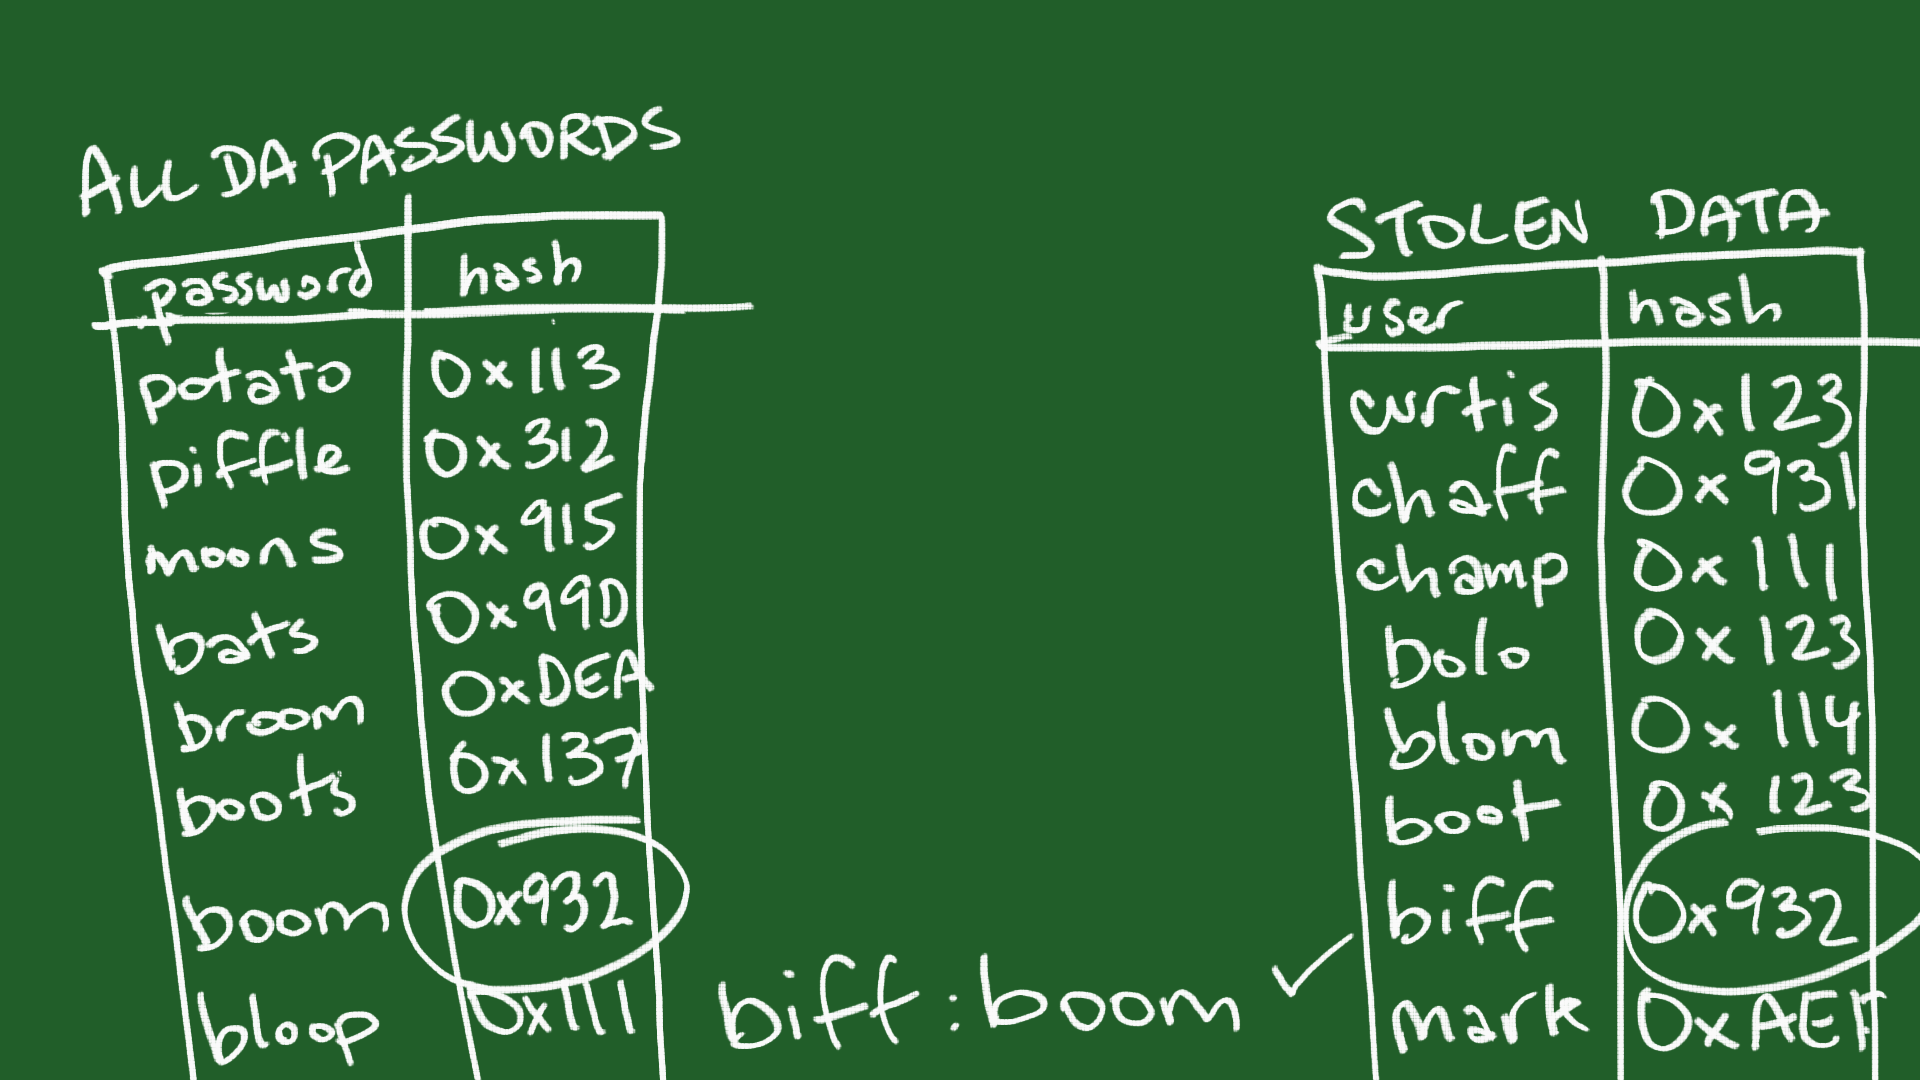 ALL DA PASSWORDS
password hash
potato 0x113
piffle 0x312
moons 0x915
bats 0x99D
broom 0xDEA
boots 0x137
boom 0x932
bloop 0x111
biff:boom ✓
STOLEN DATA
user hash
curtis 0x123
chaff 0x931
champ 0x111
bolo 0x123
blom 0x114
boot 0x123
biff 0x932
mark 0xAEF